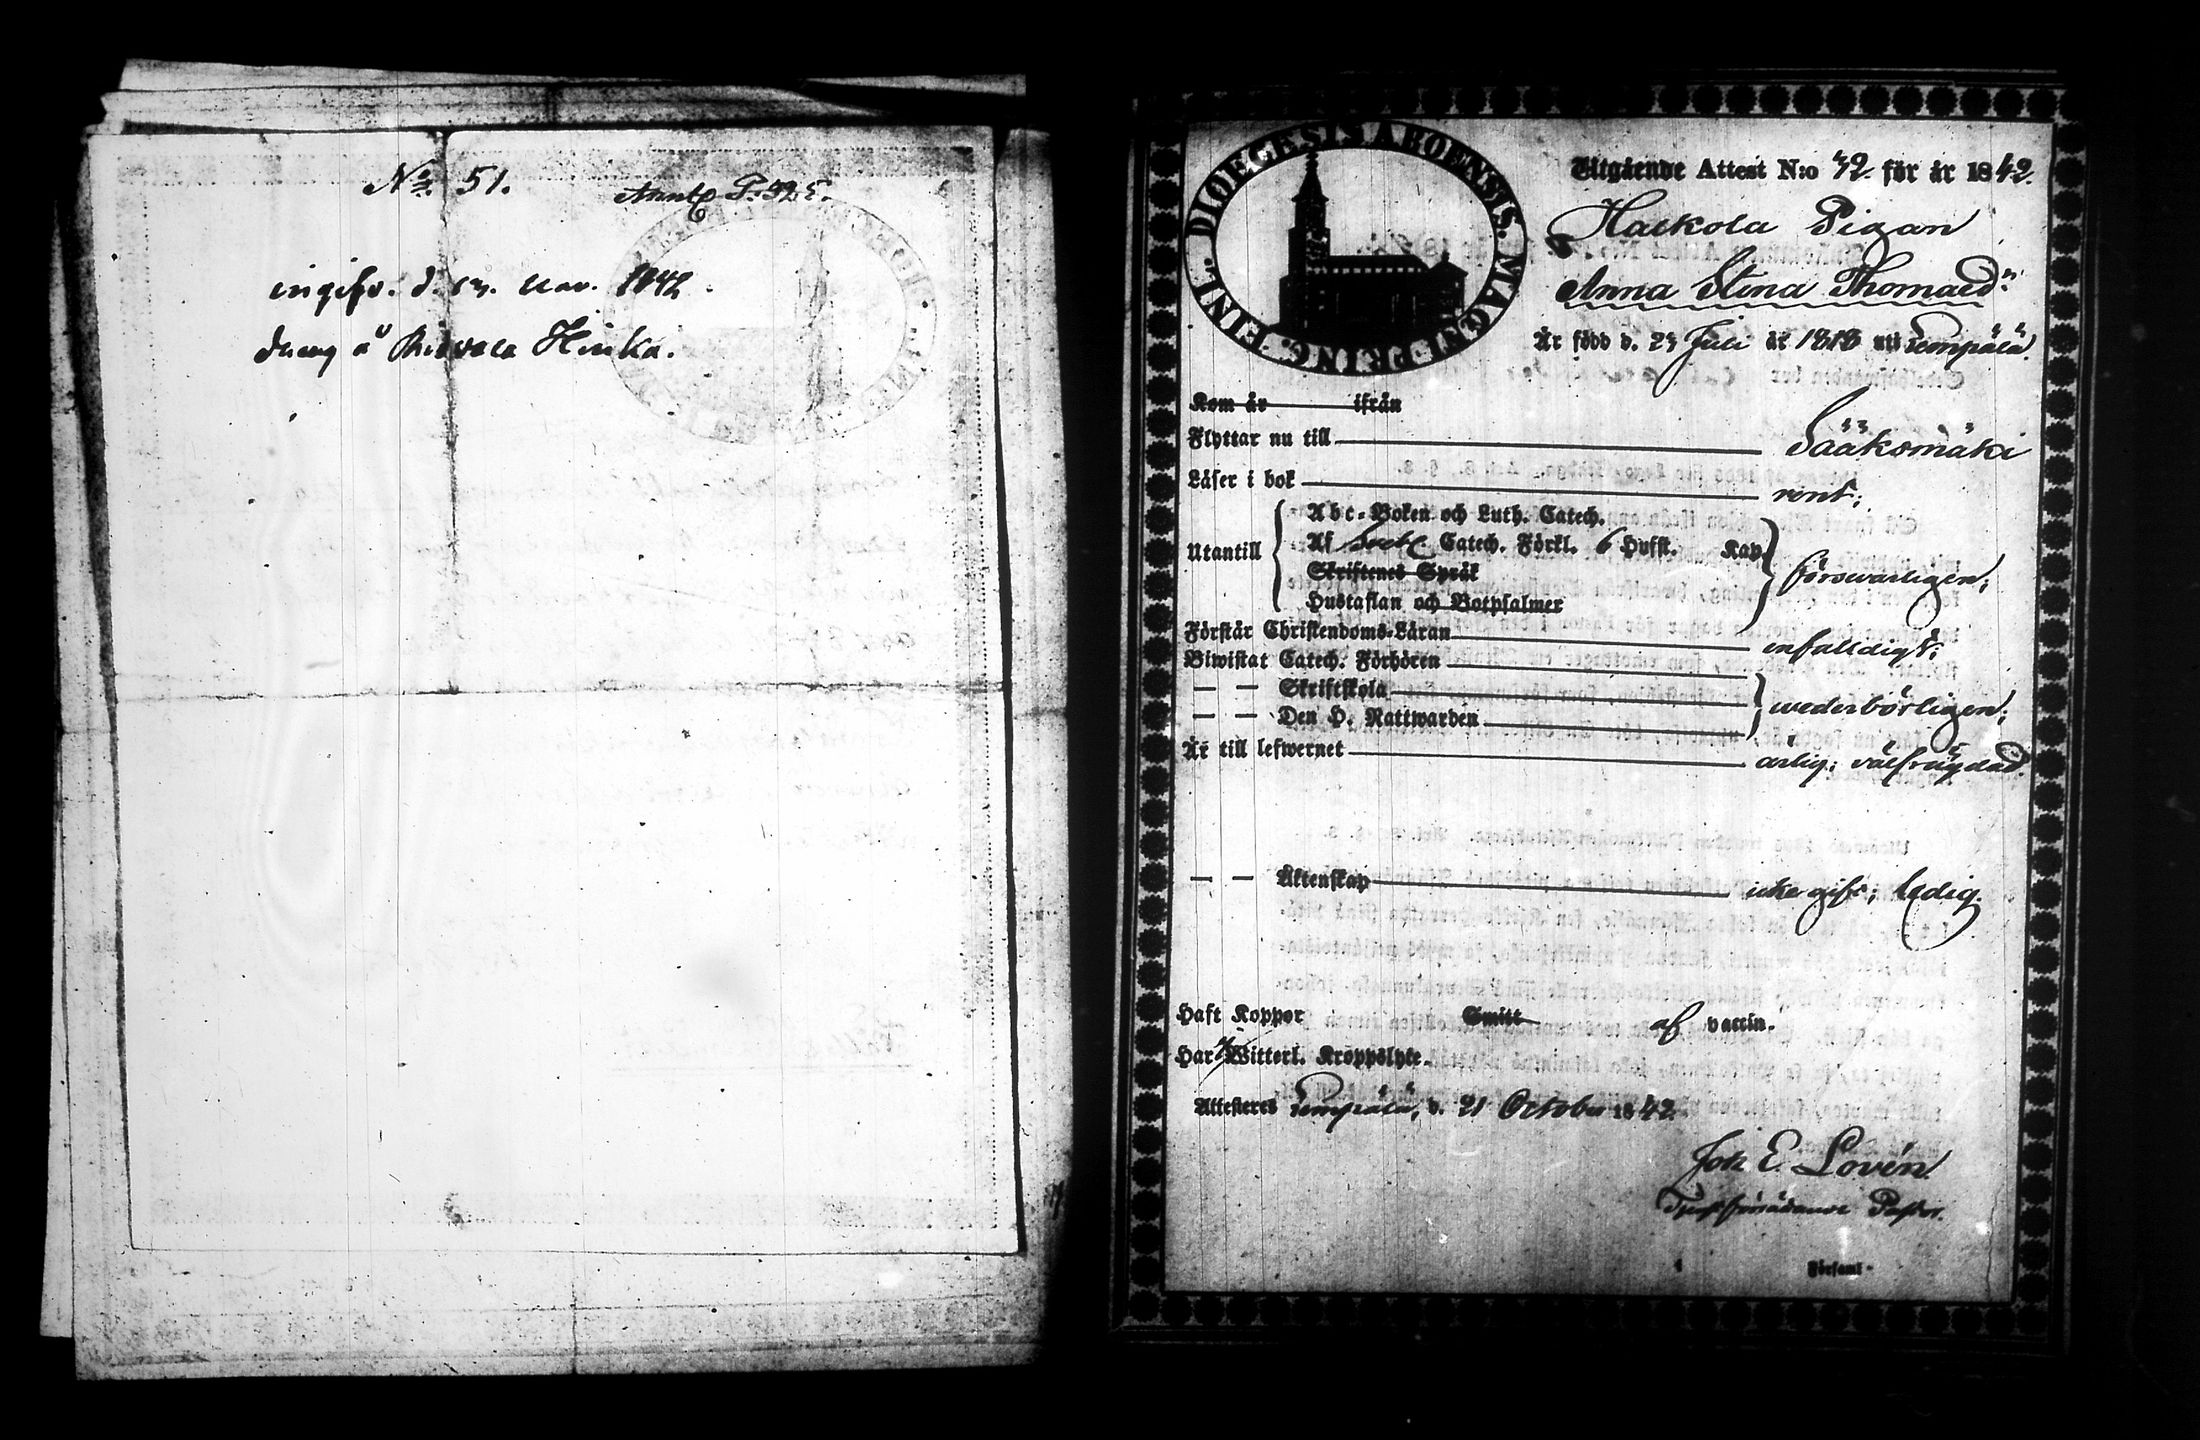 No 51.
Annt. P. 425.
ingifv. d. 13. Nov. 1842.
dräng å Ridvala Hinka.
DIOECESIS ABOENSIS. MAGNI PRINC. FINL.
Utgående Attest N:o 42 för år 1842.
Halkola Pigan
Anna Stina Thomaed:r
Är född d. 23 Juli år 1818 uti Lempälä.
Kom år ifrån
Flyttar nu till Sääksmäki
Läser i bok rent;
Abc-Boken och Luth. Catech.
Utantill Af Catech. Förkl. 6 Hufst. Kap. försvarligen;
Skriftenes Språk
Hustaflan och Botpsalmer
Förstår Christendoms-Läran enfalldigt;
Biwistat Catech. Förhören
— — Skriftskola wederbörligen;
— — Den H. Nattwarden
Är till lefwernet ärlig; välfrägdad.
— — Äktenskap icke gift; ledig.
Haft Koppor Smitt af vaccin.
Har Witterl. Kroppslyte.
Attesteres Lempälä, d. 21 October 1842.
Joh E. Lovén
Tjenstförrättande Pastor.
Församl.